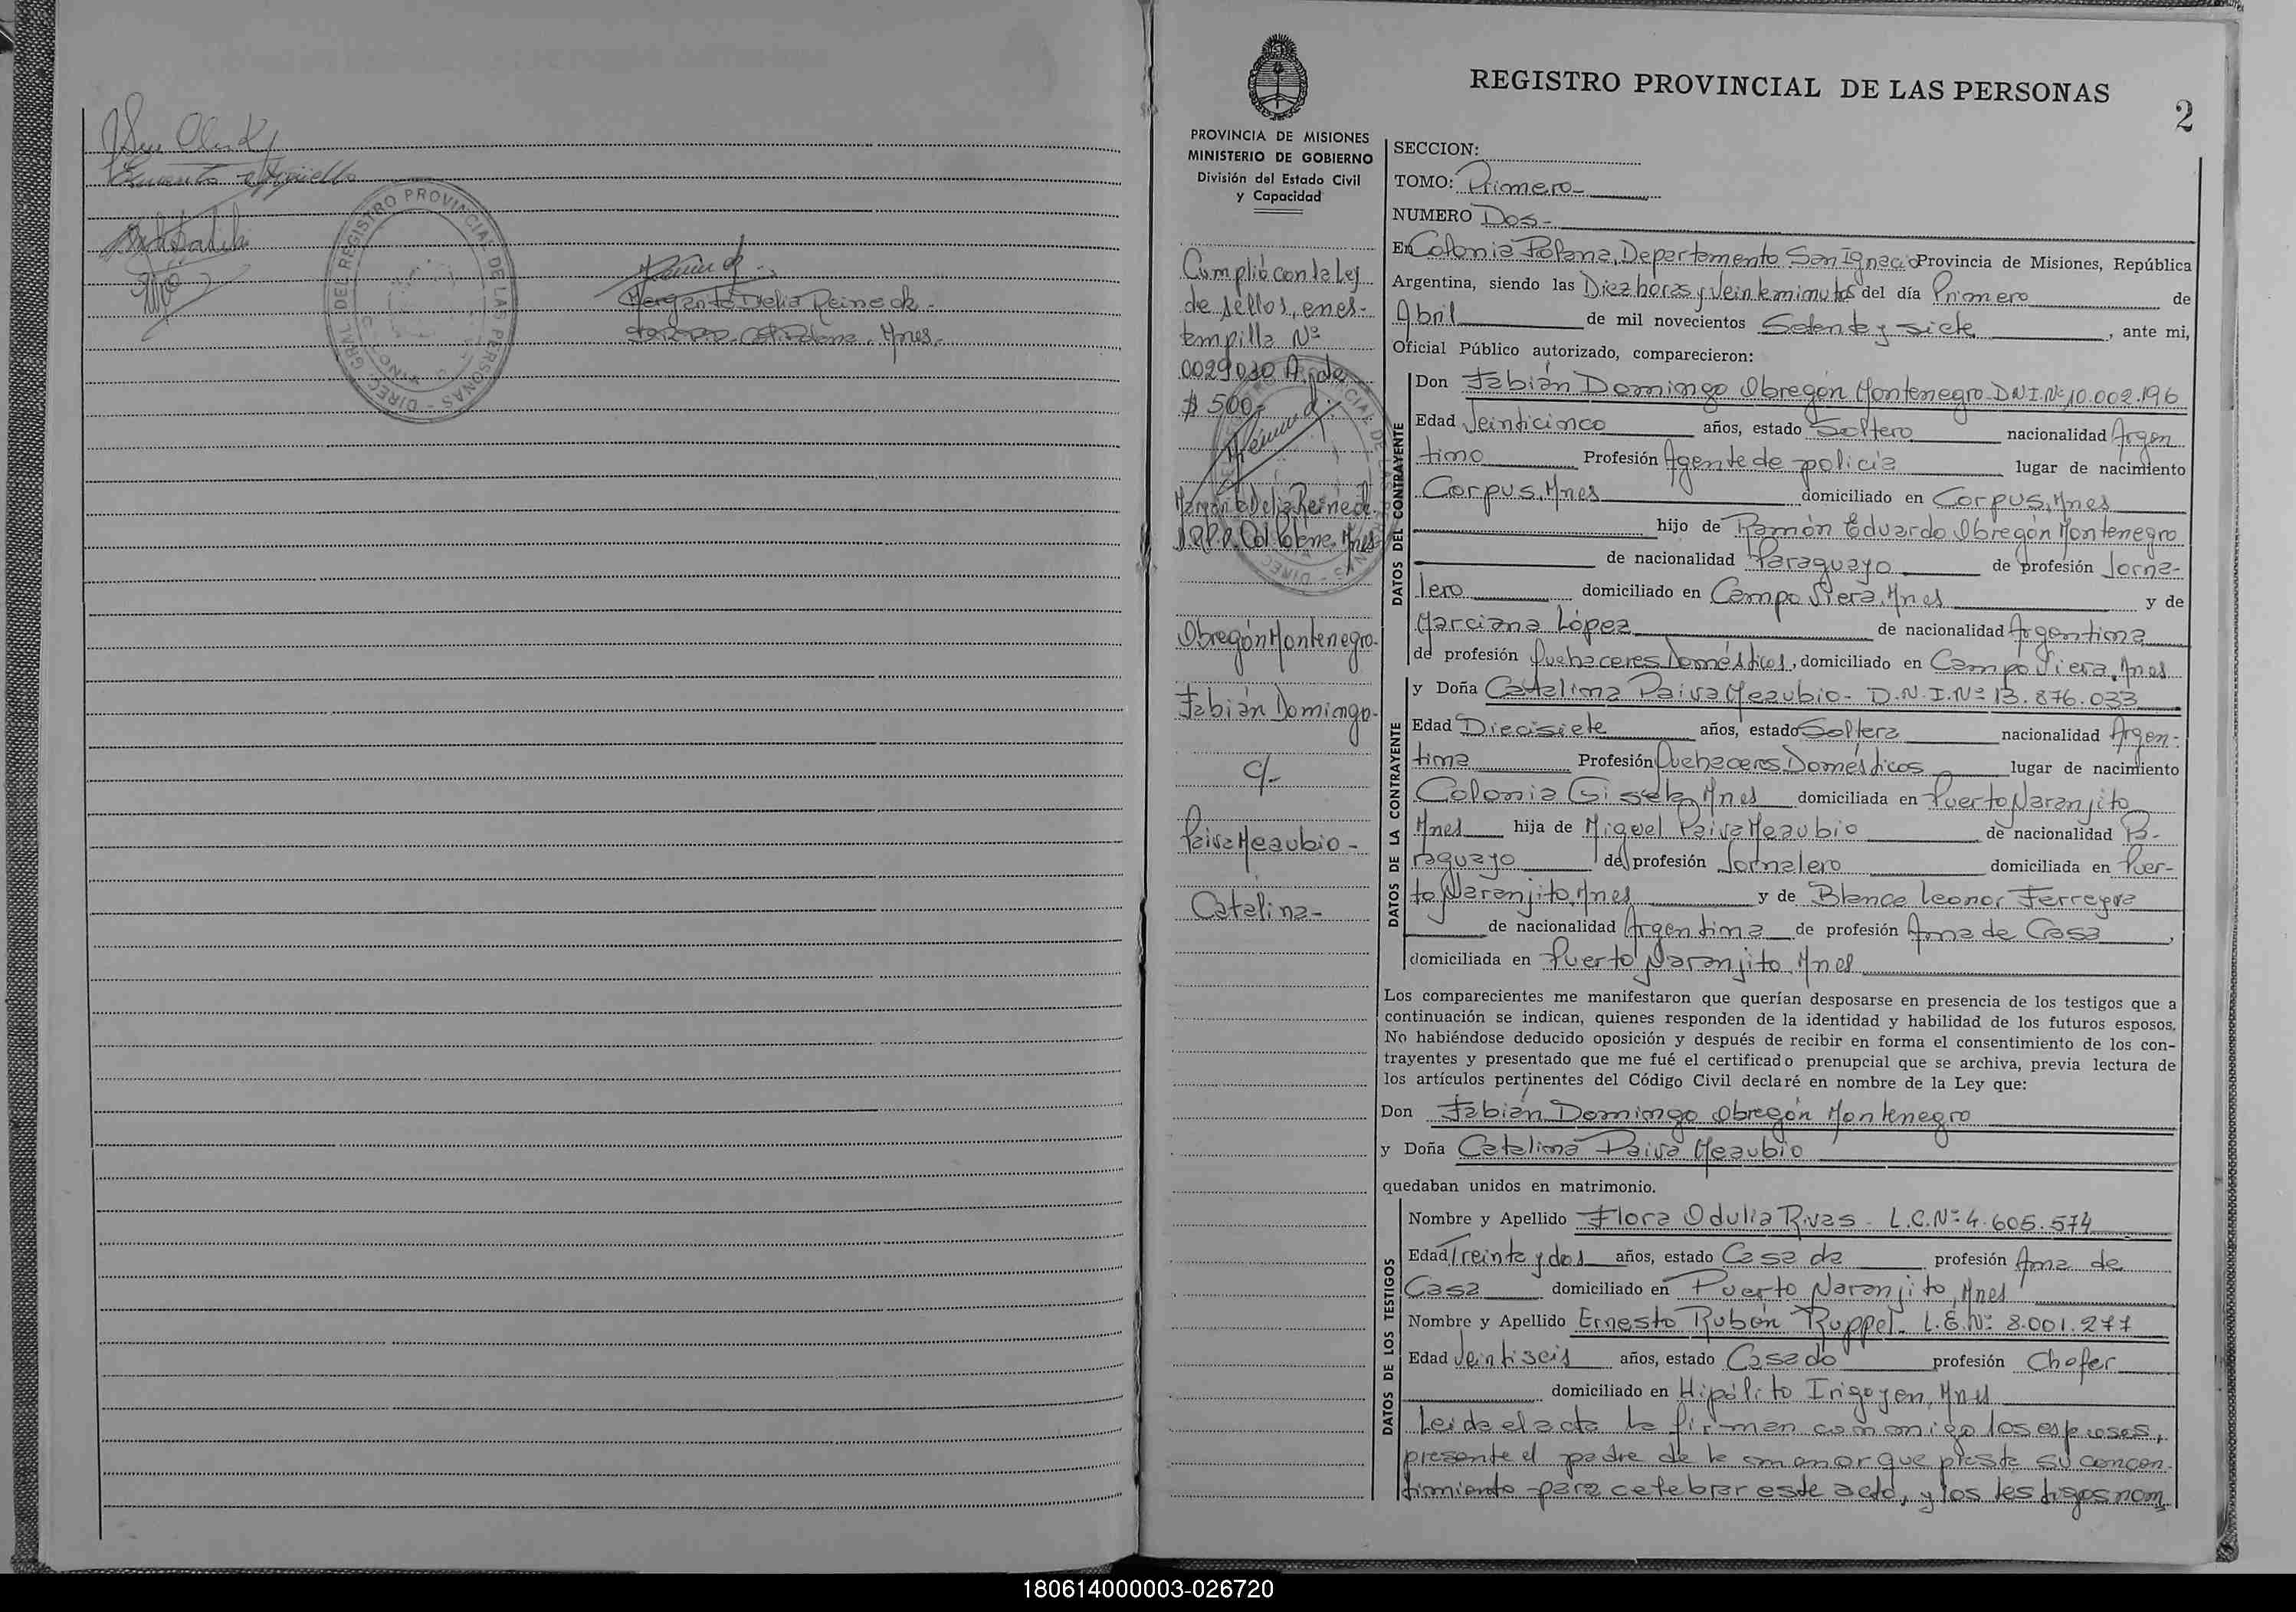 REGISTRO PROVINCIAL DE LAS PERSONAS
DIREC. GRAL. DEL REGISTRO PROVINCIAL DE LAS PERSONAS
Margarita Delia Reineck.
REGISTRO PROVINCIAL DE LAS PERSONAS
2
PROVINCIA DE MISIONES
MINISTERIO DE GOBIERNO
División del Estado Civil
y Capacidad
Cumplió con la Ley
de sellos, en es-
tampilla Nº
0029030 A, de
$ 500,-
Margarita Delia Reineck
Col. Polana. Mnes
Obregón Montenegro-
Fabián Domingo-
c/-
Paiva Meaubio-
Catalina-
SECCION:
TOMO: Primero-
NUMERO Dos-
En Colonia Polana, Departamento San Ignacio Provincia de Misiones, República
Argentina, siendo las Diez horas y Veinte minutos del día Primero de
Abril de mil novecientos Setenta y siete, ante mi,
Oficial Público autorizado, comparecieron:
DATOS DEL CONTRAYENTE
Don Fabián Domingo Obregón Montenegro-D.N.I.Nº 10.002.196
Edad Veinticinco años, estado Soltero nacionalidad Argen
tino Profesión Agente de policía lugar de nacimiento
Corpus, Mnes domiciliado en Corpus, Mnes
hijo de Ramón Eduardo Obregón Montenegro
de nacionalidad Paraguayo de profesión Jorna-
lero domiciliado en Campo Viera, Mnes y de
Marciana López de nacionalidad Argentina
de profesión Quehaceres Domésticos, domiciliado en Campo Viera, Mnes
DATOS DE LA CONTRAYENTE
y Doña Catalina Paiva Meaubio- D.N.I.Nº 13.876.033
Edad Diecisiete años, estado Soltera nacionalidad Argen-
tina Profesión Quehaceres Domésticos lugar de nacimiento
Colonia Gisela, Mnes domiciliada en Puerto Naranjito
Mnes hija de Miguel Paiva Meaubio de nacionalidad Pa-
raguayo de profesión Jornalero domiciliada en Puer-
to Naranjito, Mnes y de Blanca Leonor Ferreyra
de nacionalidad Argentina de profesión Ama de Casa,
domiciliada en Puerto Naranjito, Mnes
Los comparecientes me manifestaron que querían desposarse en presencia de los testigos que a
continuación se indican, quienes responden de la identidad y habilidad de los futuros esposos.
No habiéndose deducido oposición y después de recibir en forma el consentimiento de los con-
trayentes y presentado que me fué el certificado prenupcial que se archiva, previa lectura de
los artículos pertinentes del Código Civil declaré en nombre de la Ley que:
Don Fabián Domingo Obregón Montenegro
y Doña Catalina Paiva Meaubio
quedaban unidos en matrimonio.
DATOS DE LOS TESTIGOS
Nombre y Apellido Flora Odulia Rivas - L.C.Nº 4.605.574
Edad Treinta y dos años, estado Casada profesión Ama de
Casa domiciliado en Puerto Naranjito, Mnes
Nombre y Apellido Ernesto Rubén Ruppel- L.E.Nº 8.001.277
Edad Veintiseis años, estado Casado profesión Chofer
domiciliado en Hipólito Irigoyen, Mnes
Leida el acta la firman conmigo los esposos,
presente el padre de la menor que presta su concen-
timiento para celebrar este acto, y los testigos nom
180614000003-026720